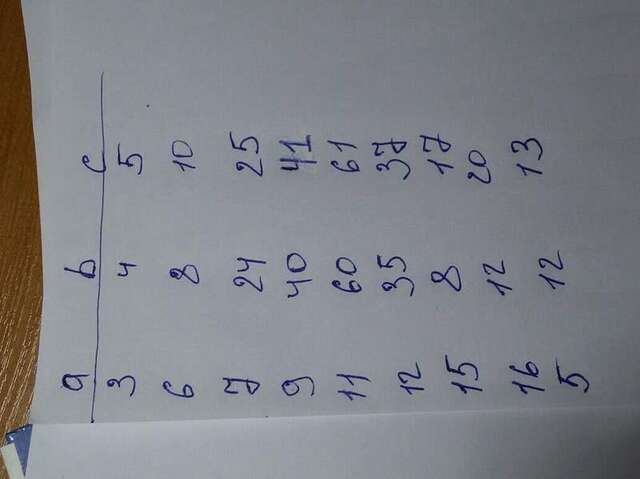 a b c
3 4 5
6 8 10
7 24 25
9 40 41
11 60 61
12 35 37
15 8 17
16 12 20
5 12 13